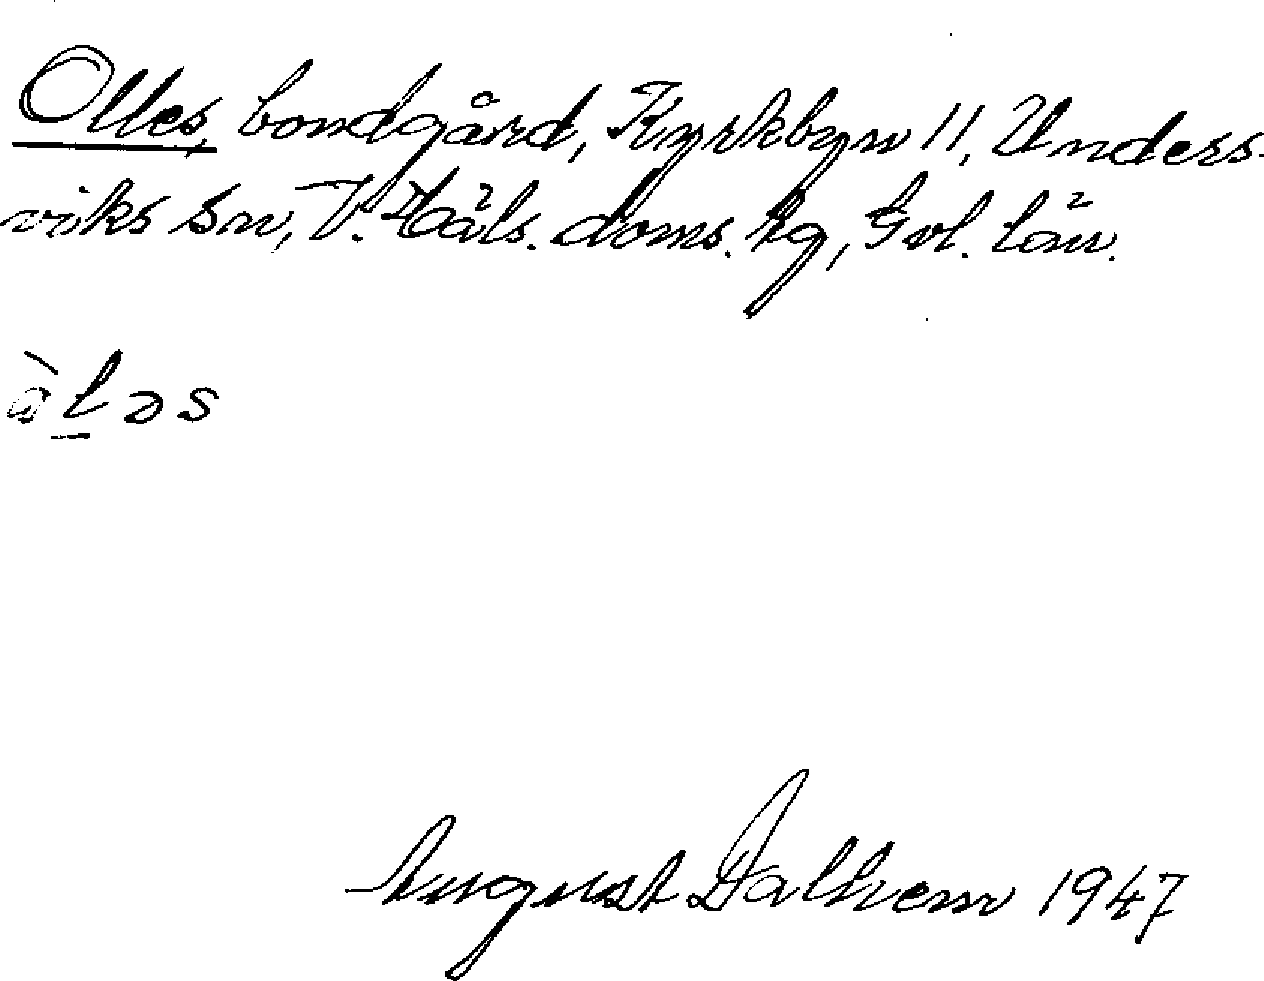 Olles, bondgård, Kyrkbyn 11, Unders-
viks sn, V. Häls. doms. hg, Gvl. län.
àl̠əs
August Dalhem 1947